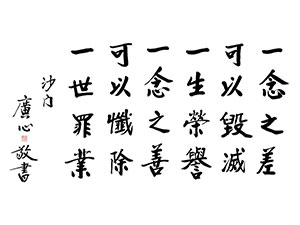 一念之差
可以毀滅
一生榮譽
一念之善
可以懺除
一世罪業
沙門
廣心敬書